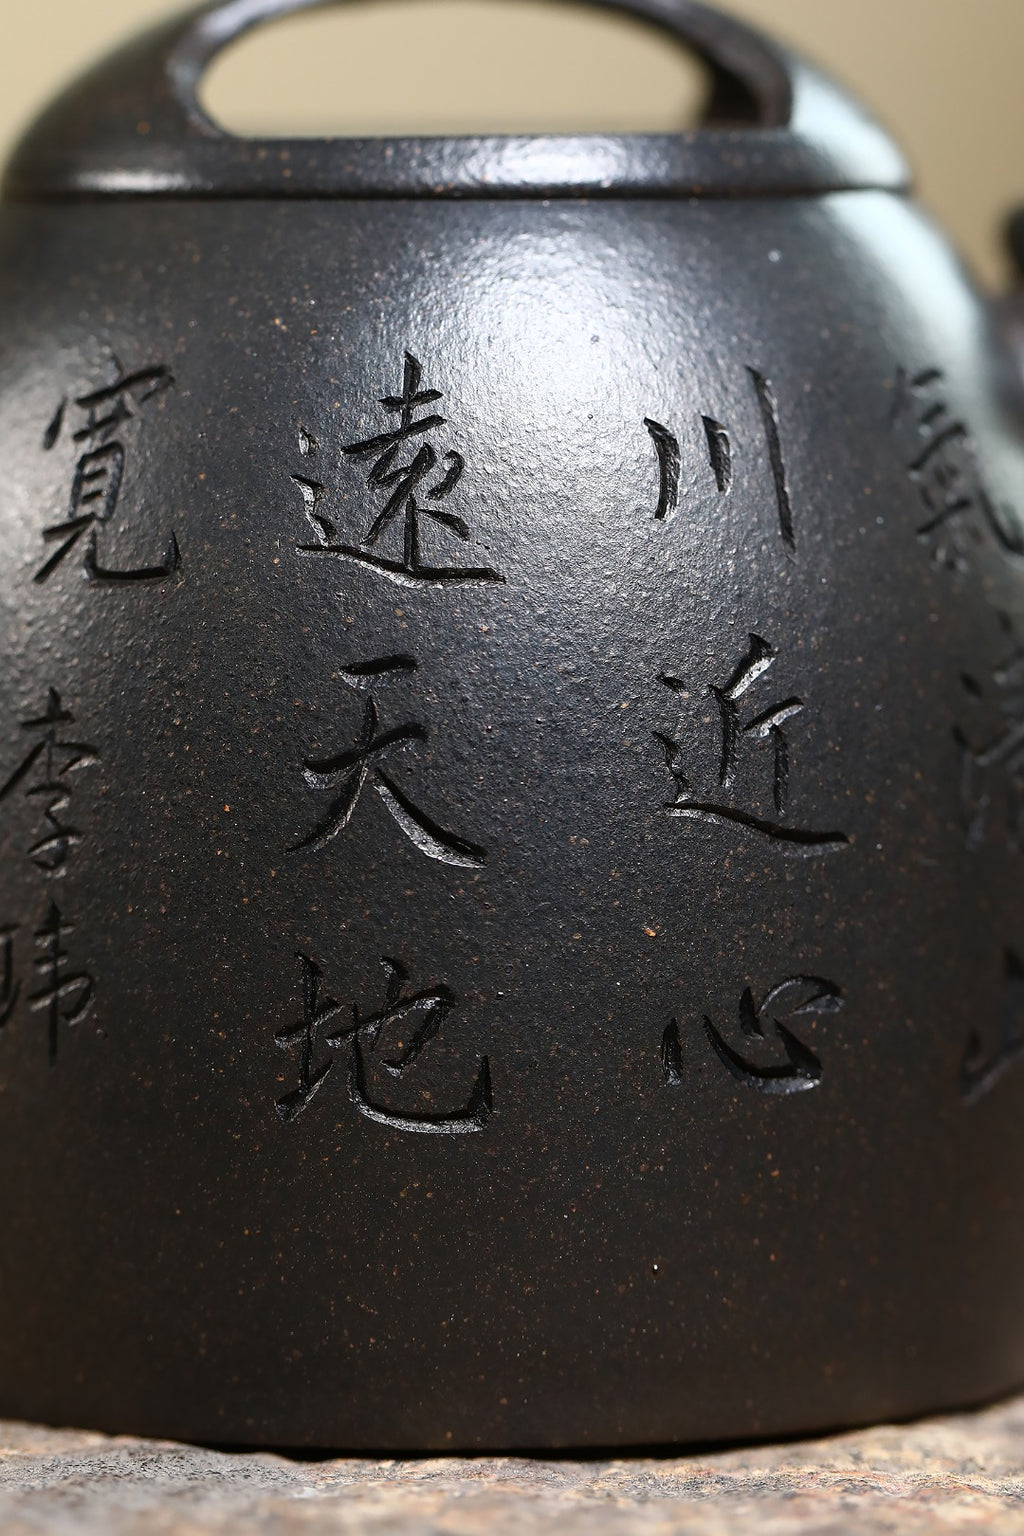 氣清山
川近心
遠天地
寬
李